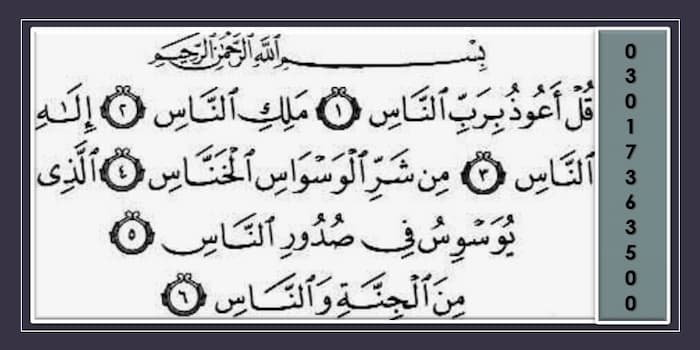 بِسْــــــمِ ٱللَّهِ ٱلرَّحْمَٰنِ ٱلرَّحِيمِ
قُلْ أَعُوذُ بِرَبِّ ٱلنَّاسِ ١ مَلِكِ ٱلنَّاسِ ٢ إِلَٰهِ
ٱلنَّاسِ ٣ مِن شَرِّ ٱلْوَسْوَاسِ ٱلْخَنَّاسِ ٤ ٱلَّذِى
يُوَسْوِسُ فِى صُدُورِ ٱلنَّاسِ ٥
مِنَ ٱلْجِنَّةِ وَٱلنَّاسِ ٦
03017363500